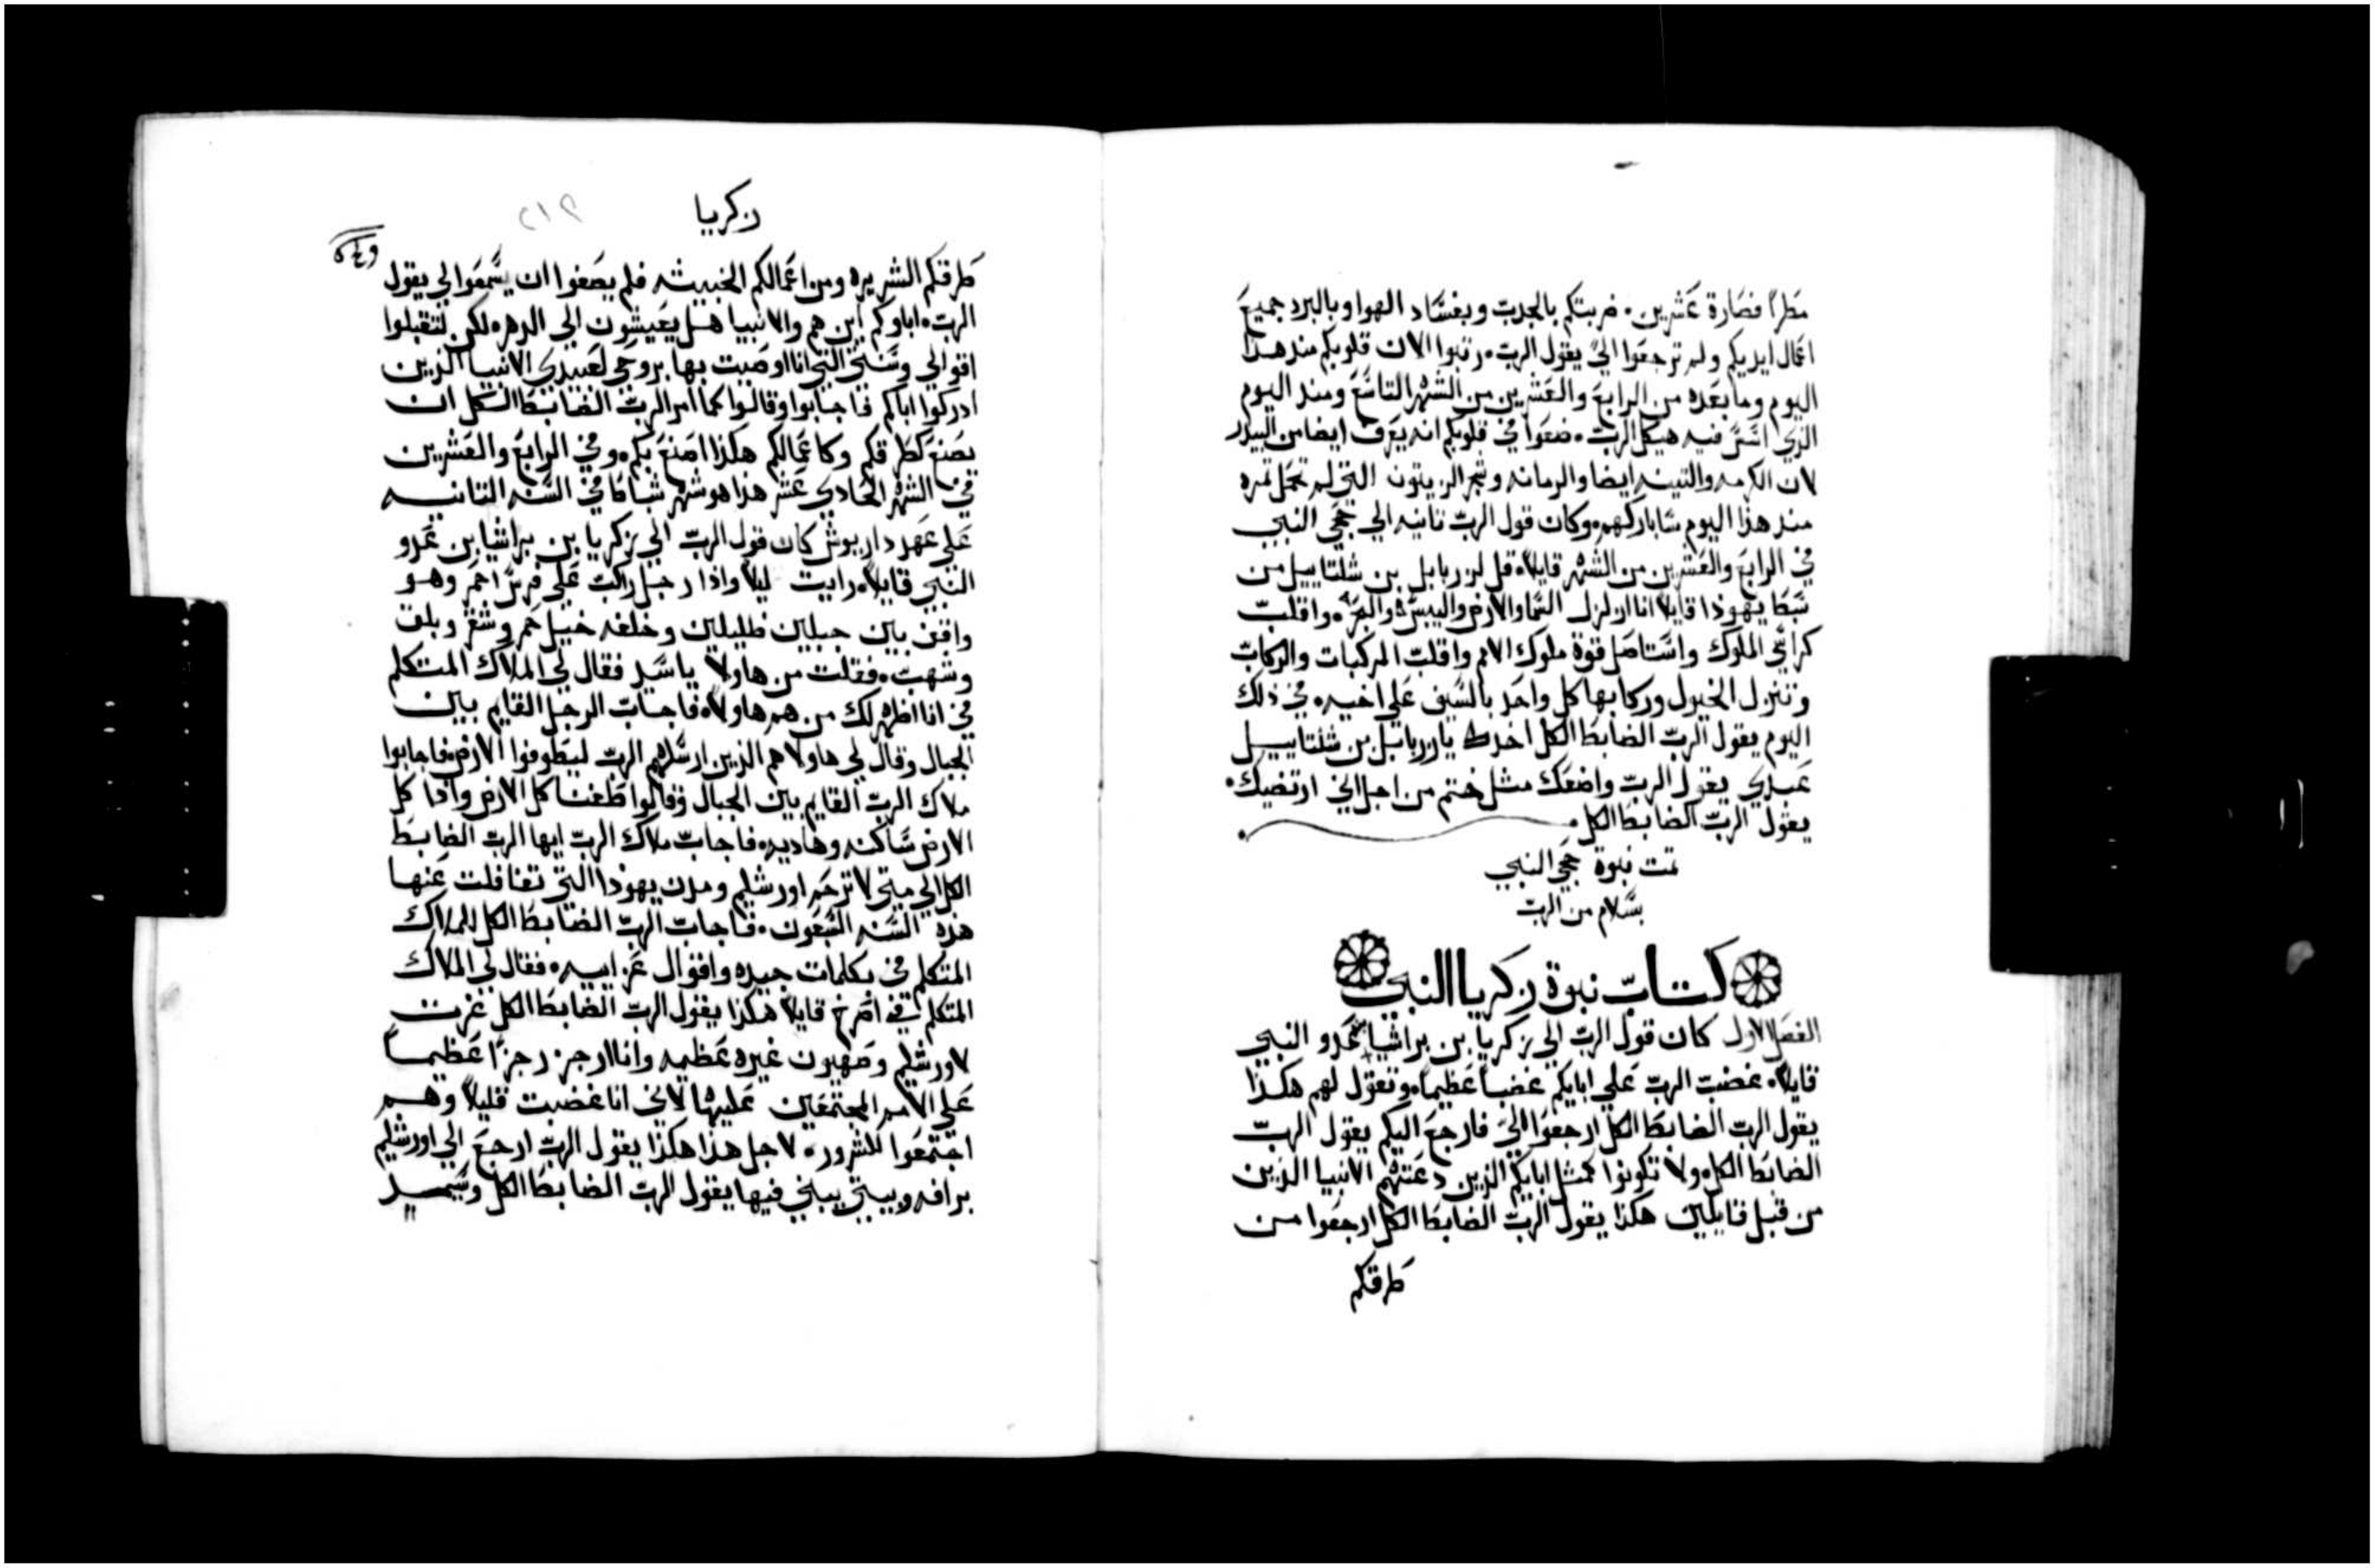 مطرًا فصارة عشرين. ضربتكم بالجدب وبفساد الهوا وبالبرد جميع
اعمال ايديكم ولم ترجعوا اليَّ يقول الرب. رتبوا الان قلوبكم منذ هذا
اليوم وما بعده من الرابع والعشرين من الشهر التاسع ومنذ اليوم
الذي اسس فيه هيكل الرب. ضعوا في قلوبكم انه يعرف ايضا من البيدر
لان الكرمه والتينه ايضا والرمانه وشجر الزيتون التي لم تحمل ثمره
منذ هذا اليوم ساباركهم. وكان قول الرب ثانيه الي حجي النبي
في الرابع والعشرين من الشهر قايلاً. قل لزربابل بن شلتاييل من
سبط يهوذا قايلاً انا ازلزل السما والارض واليبس والبحر. واقلب
كراسي الملوك واستاصل قوة ملوك الامم واقلب المركبات والركاب
وتنزل الخيول وركابها كل واحد بالسيف علي اخيه. في ذلك
اليوم يقول الرب الضابط الكل اخذك يا زربابل بن شلتاييل
عبدي يقول الرب واضعك مثل ختم من اجل اني ارتضيتك.
يقول الرب الضابط الكل.
تمت نبوة حجي النبي
بسلام من الرب
كتاب نبوة زكريا النبي
الفصل الاول كان قول الرب الي زكريا بن براشيا بن عمدو النبي
قايلاً. غضب الرب علي ابايكم غضباً عظيماً. وتقول لهم هكذا
يقول الرب الضابط الكل ارجعوا اليَّ فارجع اليكم يقول الرب
الضابط الكل. ولا تكونوا كمثل ابايكم الذين دعتهم الانبيا الذين
من قبل قايلين هكذا يقول الرب الضابط الكل ارجعوا من
طرقكم
زكريا
٢١٢
طرقكم الشريره ومن اعمالكم الخبيثه فلم يصغوا ان يسمعوا لي يقول
الرب. اباوكم اين هم والانبيا هل يعيشون الي الدهر. لكن لتقبلوا
اقوالي وسنني التي انا اوصيت بها بروحي لعبيدي الانبيا الذين
ادركوا اباكم فاجابوا وقالوا كما امر الرب الضابط الكل ان
يصنع كطرقكم وكاعمالكم هكذا اصنع بكم. وفي الرابع والعشرين
في الشهر الحادي عشر هذا هو شهر شباط في السنه الثانيه
علي عهد داريوش كان قول الرب الي زكريا بن براشيا بن عمدو
النبي قايلاً. رايت ليلاً واذا رجل راكب علي فرس احمر وهو
واقف بين جبلين ظليلين وخلفه خيل حمر وشقر وبلق
وشهب. فقلت من هاولا يا سيد فقال لي الملاك المتكلم
في انا اظهر لك من هم هاولا. فاجاب الرجل القايم بين
الجبال وقال لي هاولا هم الذين ارسلهم الرب ليطوفوا الارض. فاجابوا
ملاك الرب القايم بين الجبال وقالوا طفنا كل الارض واذا كل
الارض ساكنه وهاديه. فاجاب ملاك الرب ايها الرب الضابط
الكل الي متي لا ترحم اورشليم ومدن يهوذا التي تغافلت عنها
هذه السنه السبعون. فاجاب الرب الضابط الكل للملاك
المتكلم في بكلمات جيده واقوال عزاييه. فقال لي الملاك
المتكلم في اصرخ قايلاً هكذا يقول الرب الضابط الكل غرت
لاورشليم وصهيون غيره عظيمه وانا ارجز رجزًا عظيماً
علي الامم المجتمعين عليها لاني انا غضبت قليلاً وهم
اجتمعوا للشرور. لاجل هذا هكذا يقول الرب ارجع الي اورشليم
برافه وبيتي يبني فيها يقول الرب الضابط الكل وسيمد